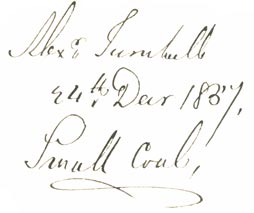 Alexr Turnbull
24th Decr 1837,
Small Coal,